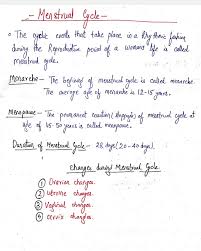 Menstrual Cycle
The cyclic events that take place in a Rhythmic fashion
during the Reproductive period of a womens life is called
menstrual cycle.
Menarche - The beginning of menstrual cycle is called menarche.
The average age of menarche is 12-15 years.
Menopause - The permanent cessation (stoppage) of menstrual cycle at
age of 45-50 years is called menopause.
Duration of Menstrual Cycle - 28 days (20-40 days).
Changes during Menstrual Cycle
1 Ovarian changes.
2 Uterine changes.
3 Vaginal changes.
4 Cervix changes.